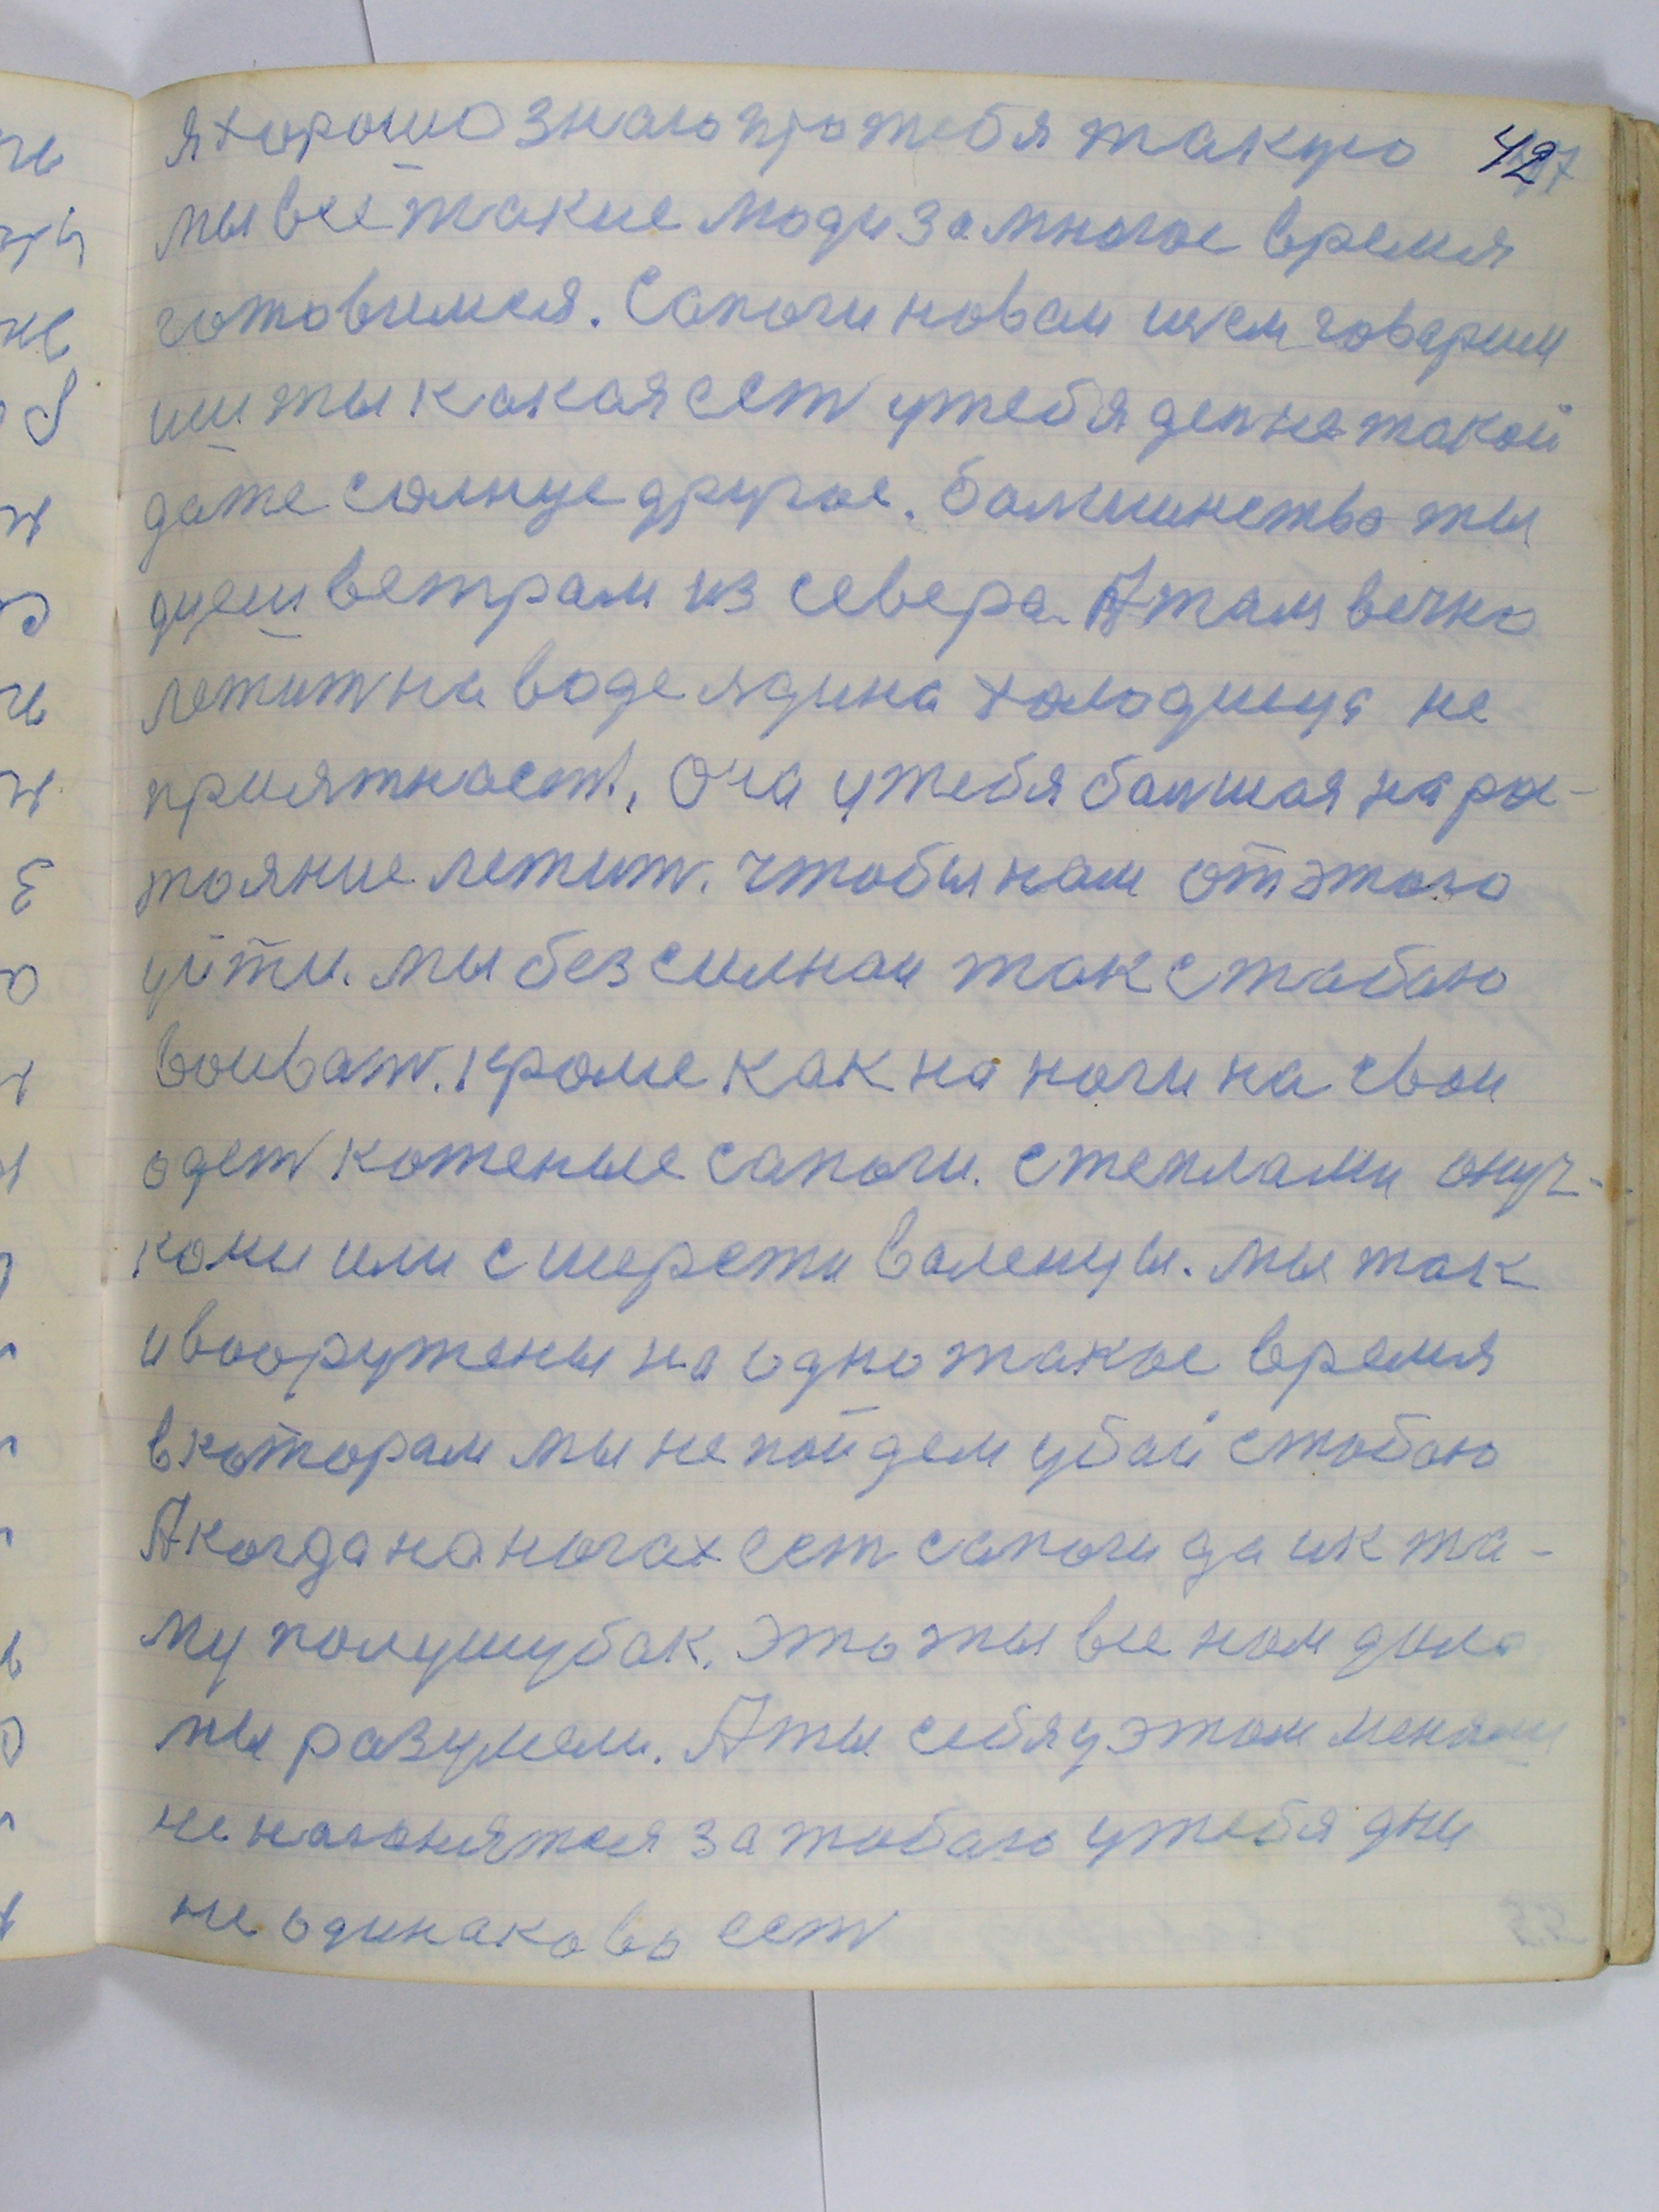 я хорошо знаю про тебя такую 42
мы все такие люди за многое время
готовимся. Сапоги новаи шием говорим
иш ты какая ест у тебя ден не такой
даже солнце другое. Балшинство ты
дуеш ветрам из севера. А там вечно
лежит на воде лядина холодища не
приятност, она у тебя балшая на рас-
тояние лежит. чтобы нам от этого
уйти. мы без силнаи так с табою
воиват. кроме как на ноги на свои
одет коженые сапоги. с теплами онуч-
ками или с шерсти валенцы. мы так
и вооружены на одно такое время
в которам мы не пойдем у бой с тобою
А когда на ногах ест сапоги да и к та-
му полушубак. это ты все нам дила
мы разумели. А ты себя у этом меняли
не нагонятся за тобаю у тебя дни
не одинаково ест